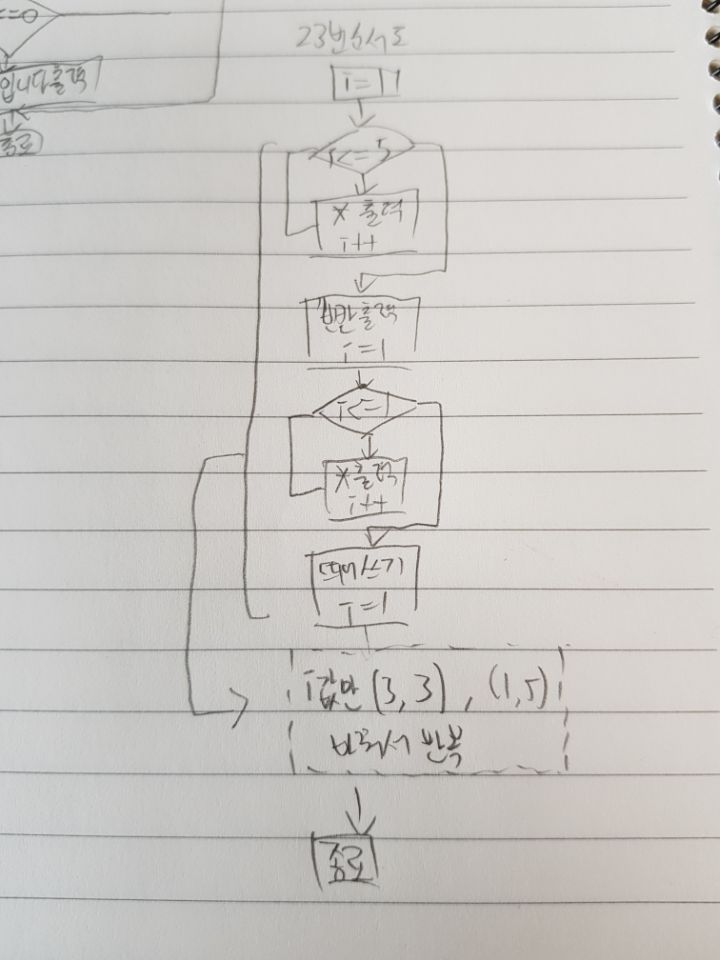 <=0
입니다 출력
종료
23번 순서도
i=1
i<=5
* 출력
i++
반만 출력
i=1
i<=1
* 출력
i++
띄어쓰기
i=1
i값만 (3, 3), (1, 5)
바꿔서 반복
종료